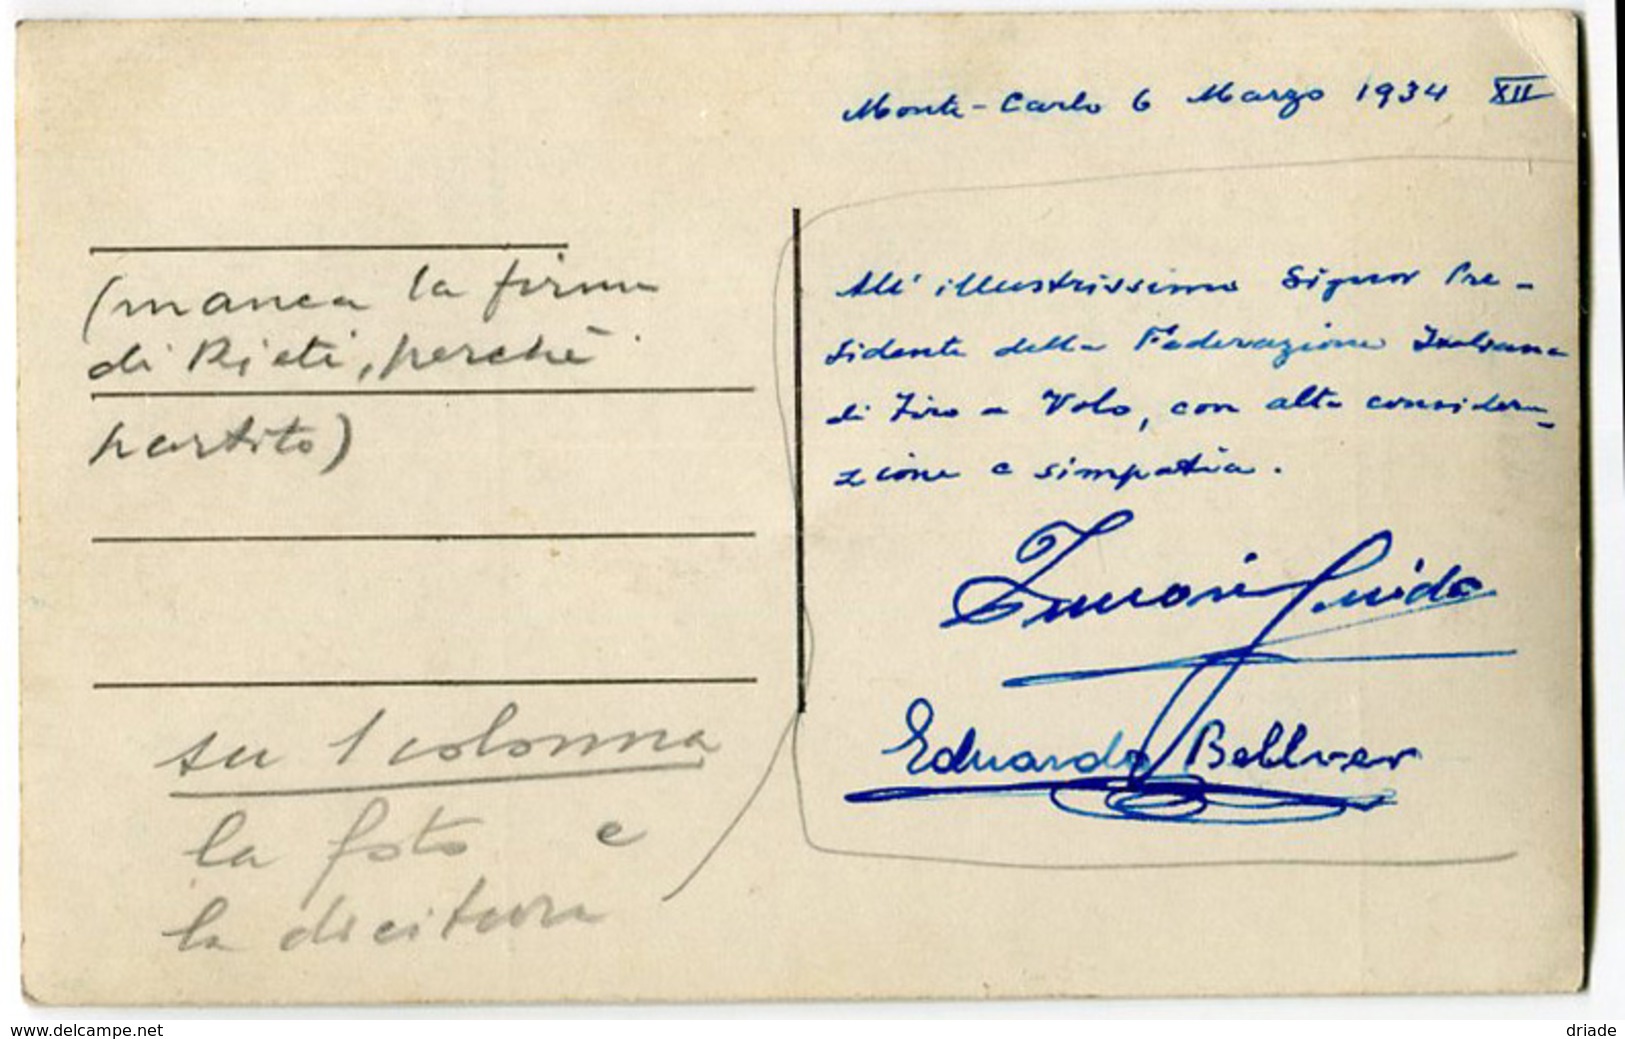 Monte-Carlo 6 Marzo 1934 XII
(manca la firma
di Rieti, perchè
partito)
su 1 colonna
la foto e
la dicitura
All' illustrissimo Signor Pre-
sidente della Federazione Italiana
di Tiro a Volo, con alta considera-
zione e simpatia.
Guido
Eduardo Bellver
www.delcampe.net
driade